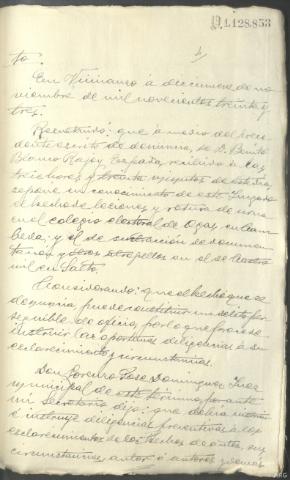 D1.128.853
to.
En Vimianzo á diecinueve de no
viembre de mil novecientos treinta y
tres.
Resultando: que á medio del prece
dente escrito de denuncia, de D. Benito
Blanco Rajoy España, recibido a las
trece horas y treinta minutos de este dia,
se pone en conocimiento de este Juzgado
el hecho de lesiones y rotura de urna
en el colegio electoral de Ozas, en Cam
beda; y el de sustracción de documen
tación y otros atropellos en el de
mil en Salto.
Considerando: que el hecho que se
denuncia puede constituir un delito per
seguible de oficio, por lo que procede
instruir las oportunas diligencias á su
esclarecimiento y circunstancias.
Don Pose Dominguez, Juez
municipal de este término, por ante
mi Secretario dijo: que debia
é instruye diligencias preventivas á
esclarecimiento de los hechos denunciados, sus
circunstancias, autor ó autores y demas